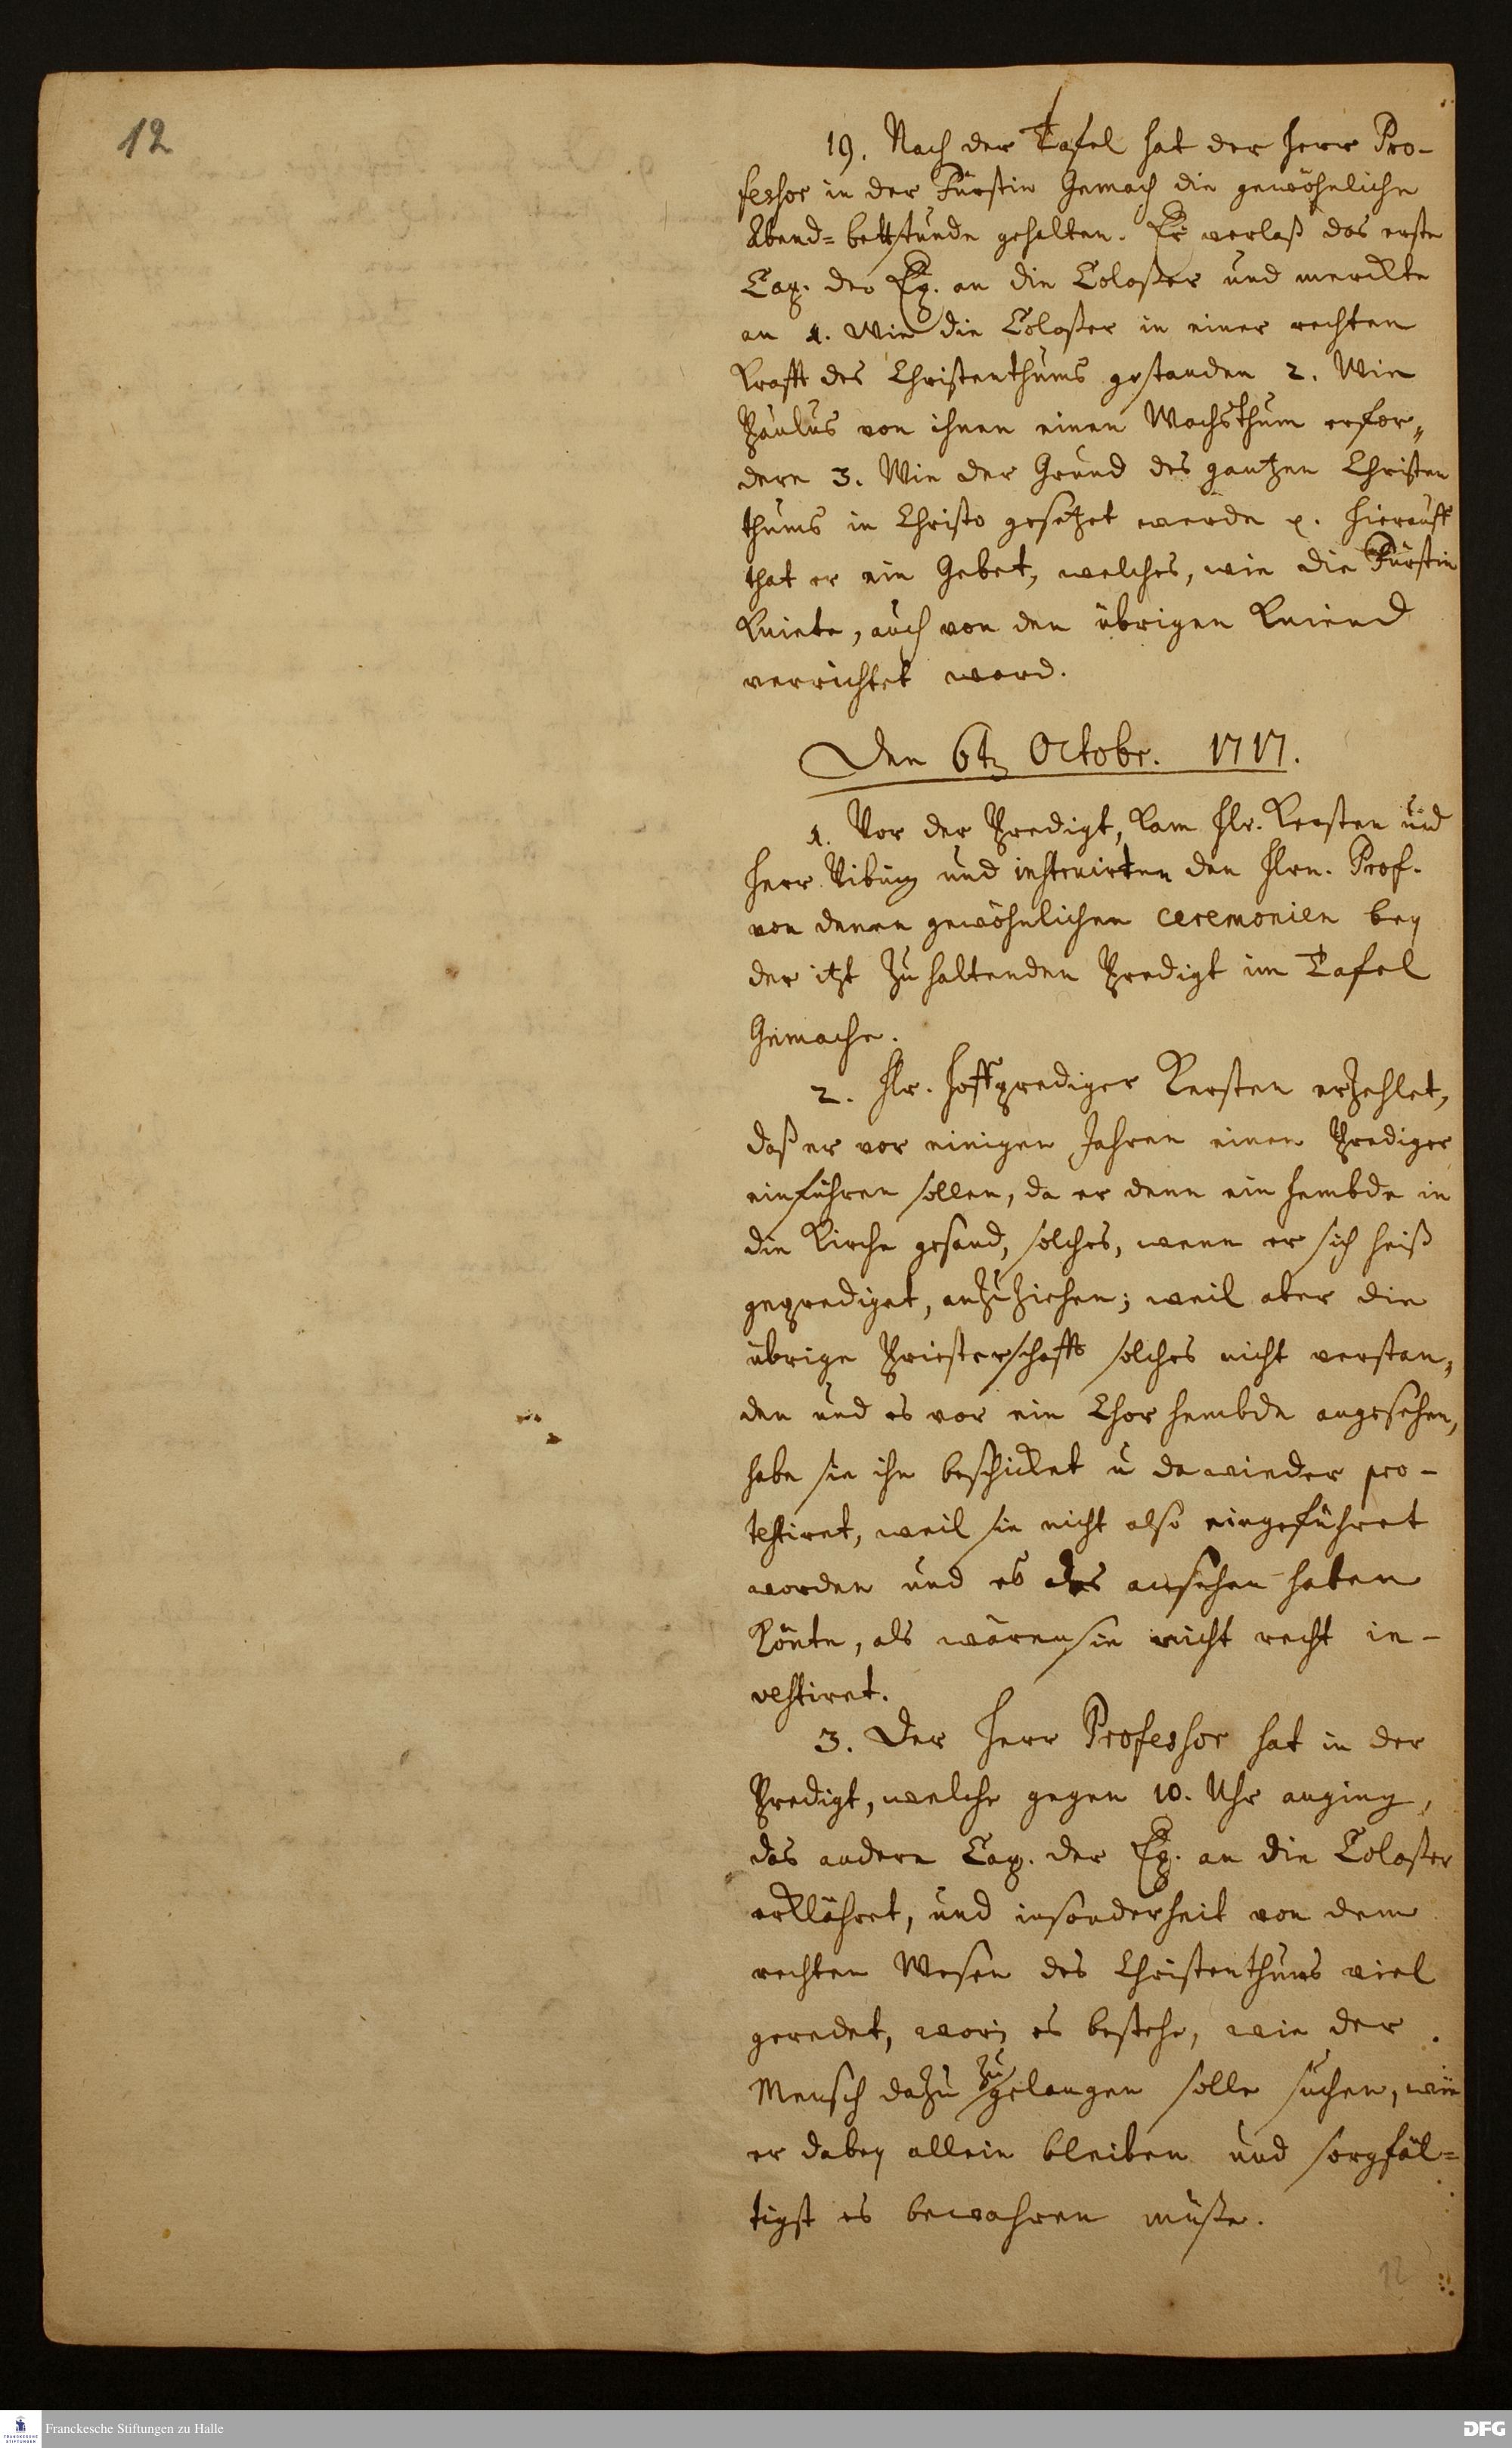 12
19. Nach der Tafel hat der Herr Pro-
fessor in der Fürstin Gemach die gewöhnliche
Abend-bettstunde gehalten. Er verlaß das erste
Cap. der Ep. an die Coloßer und merckte
an 1. Wie die Coloßer in einer rechten
Krafft des Christenthums gestanden 2. Wie
Paulus von ihnen einen Wachsthum erfor„
dere 3. Wie der Grund des gantzen Christen
thums in Christo gesetzet werde p. Hierauff
that er ein Gebet, welches, wie die Fürstin
kniete, auch von den übrigen kniend
verrichtet ward.
Den 6t. Octobr. 1717.
1. Vor der Predigt, kam Hr. Kersten und
Herr und instruirten den Hrn. Prof.
von denen gewöhnlichen ceremonien bey
der itzt zu haltenden Predigt im Tafel
Gemache.
2. Hr. Hoffprediger Kersten erzehlet,
daß er vor einigen Jahren einen Prediger
einführen sollen, da er denn ein Hembde in
die Kirche gesand, solches, wenn er sich heiß
geprediget, anzuziehen; weil aber die
übrige Priesterschafft solches nicht verstan„
den und es vor ein Chor hembde angesehen,
habe sie ihn beschicket u dawieder pro-
testiret, weil sie nicht also eingeführet
worden und es das ansehen haben
könte, als wären sie nicht recht in-
vestiret.
3. Der Herr Professor hat in der
Predigt, welche gegen 10. Uhr anging,
das andere Cap. der Ep. an die Coloßer
erklähret, und insonderheit von dem
rechten Wesen des Christenthums viel
geredet, worin es bestehe, wie der
Mensch dazu zu gelangen solle suchen, wie
er dabey allein bleiben und sorgfäl=
tigst es bewahren müße.
12
Franckesche Stiftungen zu Halle
DFG